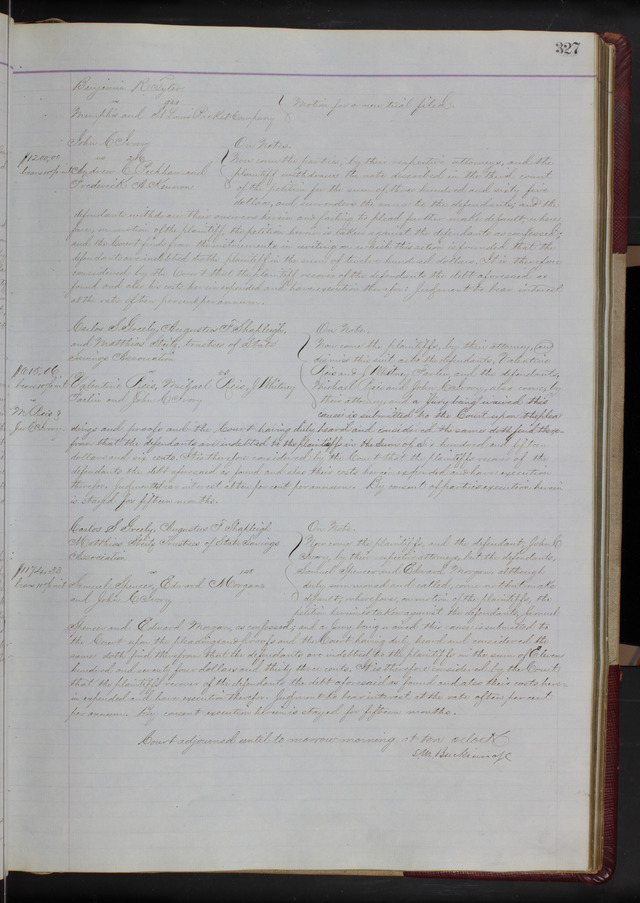 327
Benjamin R. Tyler
vs
Memphis and St Louis Packet Company } Motion for a new trial filed.
John C Ivory } On Notes.
$1200.00 transcript
vs
Andrew C and
Frederick A
Now come the parties, by their respective attorneys, and the
plaintiff withdraws the note described in the third count
of the petition for the sum of three hundred and sixty five
dollars, and surrenders the same to the defendants; and the
defendants withdraw their answers herein and failing to plead further make default; where-
fore, on motion of the plaintiff the petition herein is taken against the defendants as confessed;
and the Court finds from the instruments in writing on which this action is founded that the
defendants are indebted to the plaintiff in the sum of twelve hundred dollars. It is therefore
considered by the Court that the plaintiff recover of the defendants the debt aforesaid as
found and also his costs herein expended and have execution therefor. Judgment to bear interest
at the rate of ten per cent per annum.
Carlos S. Greely, Augustus F. Shapleigh, } On Note.
and Matthias trustees of State
Savings Association
$615.06 transcript
vs
Valentine Michael J Whitney
and John C Ivory
Now come the plaintiffs, by their attorney, and
dismiss this suit as to the defendants, Valentine
and J Whitney and the defendants,
Michael and John C Ivory, also come, by
their attorney, and a Jury being waived, this
cause is submitted to the Court upon the plea-
dings and proofs and the Court having duly heard and considered the same doth find there-
from that the defendants are indebted to the plaintiffs in the sum of six hundred and fifteen
dollars and six cents. It is therefore considered by the Court that the plaintiffs recover of the
defendants the debt aforesaid as found and also their costs herein expended and have execution
therefor. Judgment to bear interest at ten per cent per annum. By consent of parties execution herein
is stayed for fifteen months.
Carlos S Greely, Augustus F Shapleigh } On Note.
Matthias Trustees of State Savings
Association
$1174.33 transcript
vs
Samuel Spencer, Edward Morgan
and John C Ivory
Now come the plaintiffs, and the defendant, John C
Ivory, by their respective attorneys, but the defendants,
Samuel Spencer and Edward Morgan although
duly summoned and called, come not but make
default; wherefore, on motion of the plaintiffs, the
petition herein is taken against the defendants, Samuel
Spencer and Edward Morgan, as confessed; and a Jury being waived this cause is submitted to
the Court upon the pleadings and proofs and the Court having duly heard and considered the
same doth find therefrom that the defendants are indebted to the plaintiffs in the sum of Eleven
hundred and seventy four dollars and thirty three cents. It is therefore considered by the Court
that the plaintiffs recover of the defendants the debt aforesaid as found and also their costs here-
in expended and have execution therefor. Judgment to bear interest at the rate of ten per cent
per annum. By consent execution herein is stayed for fifteen months.
Court adjourned until tomorrow morning at ten o'clock